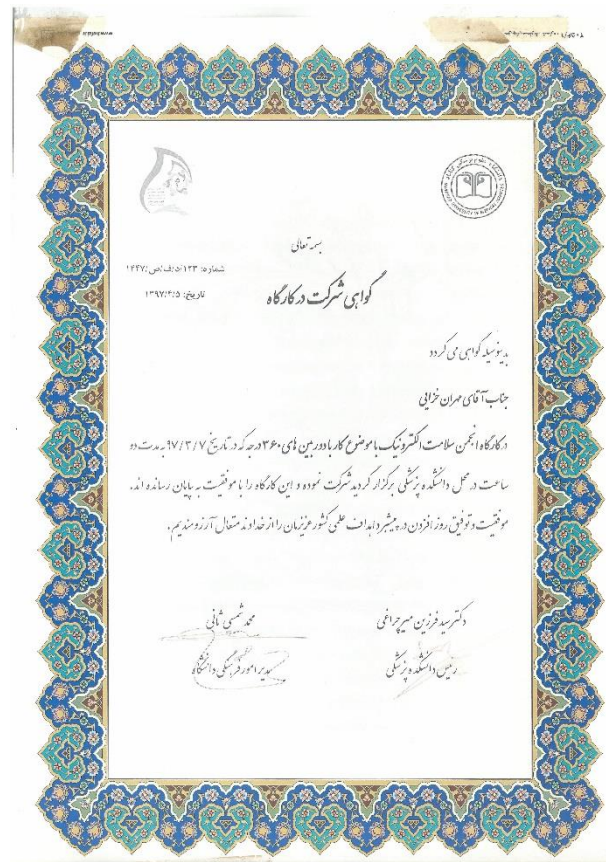 بسمه تعالی
شماره: ۱۲۳/د/ف/ص/۱۴۴۷
تاریخ: ۱۳۹۷/۴/۵
گواهی شرکت در کارگاه
بدینوسیله گواهی می گردد
جناب آقای مهران خزایی
در کارگاه انجمن سلامت الکترونیک با موضوع کار با دوربین های ۳۶۰ درجه که در تاریخ ۹۷/۳/۷ به مدت دو
ساعت در محل دانشکده پزشکی برگزار گردید شرکت نموده و این کارگاه را با موفقیت به پایان رسانده اند.
موفقیت و توفیق روز افزون در پیشبرد اهداف علمی کشور عزیزمان را از خداوند متعال آرزومندیم.
دکتر سید فرزین میرچراغی
رئیس دانشکده پزشکی
محمد شمسی ثانی
مدیر امور فرهنگی دانشگاه